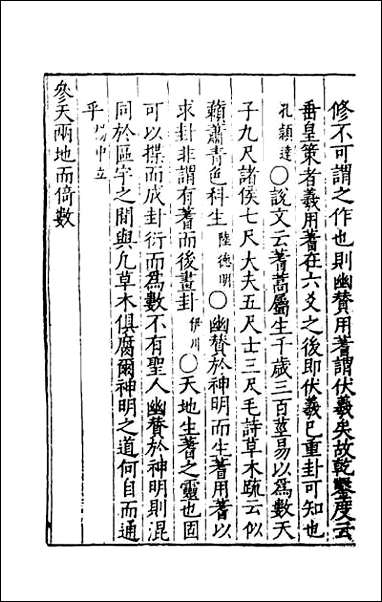 修不可謂之作也則幽贊用蓍謂伏羲矣故乾鑿度云
垂皇策者羲用蓍在六爻之後即伏羲已重卦可知也
孔穎達〇說文云蓍蒿屬生千歲三百莖易以為數天
子九尺諸侯七尺大夫五尺士三尺毛詩草木疏云似
藾蕭青色科生陸德明〇幽贊於神明而生蓍用蓍以
求卦非謂有蓍而後畫卦伊川〇天地生蓍之靈也固
可以揲而成卦衍而為數不有聖人幽贊於神明則混
同於區宇之間與凡草木俱腐爾神明之道何自而通
乎楊中立
參天兩地而倚數